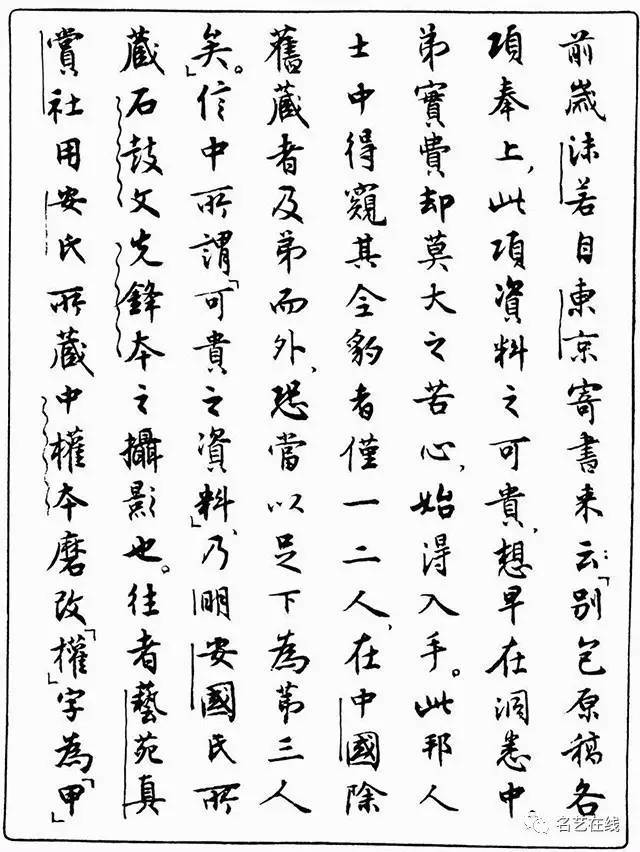 前歲沫若自東京寄書来云：「别包原稿各
項奉上，此項資料之可貴，想早在洞悉中
弟實費却莫大之苦心，始得入手。此邦人
士中得窺其全豹者僅一二人，在中國除
舊藏者及弟而外，恐當以足下為第三人
矣。」信中所謂「可貴之資料」，乃明安國氏所
藏石鼓文先鋒本之攝影也。往者藝苑真
賞社用安氏所藏中權本磨改「權」字為「甲」
名艺在线